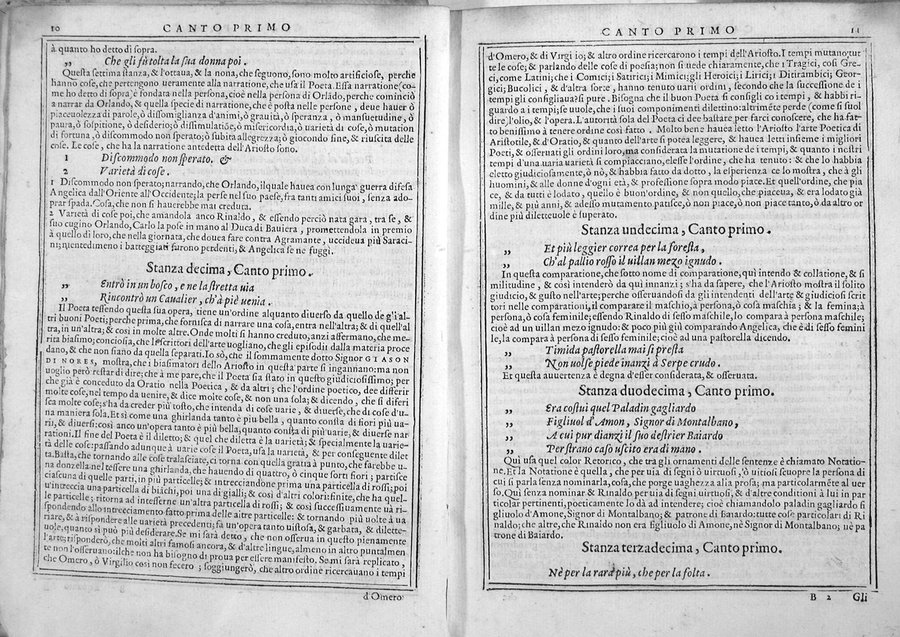 10 CANTO PRIMO
à quanto ho detto di sopra.
„ Che gli fù tolta la sua donna poi.
Questa settima stanza, & l'ottaua, & la nona, che seguono, sono molto artificiose, perche
hanno cose, che pertengono ueramente alla narratione, che usa il Poeta. Essa narratione; co-
me ho detto di sopra; è fondata nella persona, cioè nella persona di Orlãdo, perche cominciò
a narrar da Orlando, & quella specie di narratione, che è posta nelle persone, deue hauer ò
piaceuolezza di parole, ò dissomiglianza d'animi, ò grauità, ò speranza, ò mansuetudine, ò
paura, ò sospitione, ò desiderio; ò dissimulatiõe, ò misericordia, ò uarietà di cose, ò mutation
di fortuna, ò discommodo non sperato; ò subita allegrezza; ò giocondo fine, & riuscita delle
cose. Le cose, che ha la narratione antedetta dell'Ariosto sono.
1 Discommodo non sperato. &
2 Varietà di cose.
1 Discommodo non sperato; narrando, che Orlando, il quale hauea con lunga guerra difesa
Angelica dall'Oriente all'Occidente; la perse nel suo paese, fra tanti amici suoi, senza ado-
prar spada. Cosa, che non si hauerebbe mai creduta.
2 Varietà di cose poi, che amandola anco Rinaldo, & essendo perciò nata gara, tra se, &
suo cugino Orlando, Carlo la pose in mano al Duca di Bauiera, promettendola in premio
à quello di loro, che nella giornata, che douea fare contra Agramante, uccideua più Saraci-
ni; nientedimeno i battegiati furono perdenti, & Angelica se ne fuggì.
Stanza decima, Canto primo.
„ Entrò in un bosco, e ne la stretta uia
„ Rincontrò un Caualier, ch'à piè uenia.
Il Poeta tessendo questa sua opera, tiene un'ordine alquanto diuerso da quello de gl'al-
tri buoni Poeti; perche prima, che fornisca di narrare una cosa, entra nell'altra; & di quell'al
tra, in un'altra; & così in molte altre. Onde molti si hanno creduto, anzi affermano, che me-
rita biasimo; conciosia, che li scrittori dell'arte uogliano, che gli episodij dalla materia proce
dano, & che non siano da quella separati. Io sò, che il sommamente dotto Signor GIASON
DI NORES, mostra, che i biasimatori dello Ariosto in questa parte si ingannano: ma non
uoglio però restar di dire; che à me pare, che il Poeta sia stato in questo giudiciosissimo; per
che già è conceduto da Oratio nella Poetica, & da altri; che l'ordine poetico, dee differir
molte cose, nel tempo da uenire, & dice molte cose, & non una sola; & dicendo, che si diferi
sca molte cose; s'ha da creder più tosto, che intenda di cose uarie, & diuerse, che di cose d'u-
na maniera sola. Et sì come una ghirlanda tanto è piu bella, quanto consta di fiori più ua-
rij, & diuersi; cosi anco un'opera tanto è più bella; quanto consta di più uarie, & diuerse nar
rationi. Il fine del Poeta è il diletto; & quel che diletta è la uarietà; & specialmente la uarie-
tà delle cose: passando adunque à uarie cose il Poeta, usa la uarietà, & per conseguente dilet
ta. Basta, che tornando alle cose tralasciate, ci torna con quella gratia à punto, che farebbe u-
na donzella nel tessere una ghirlanda, che hauendo di quattro, ò cinque sorti fiori; partisce
ciascuna di quelle parti, in più particelle; & intrecciandone prima una particella di rossi; poi
u'intreccia una particella di biãchi, poi una di gialli; & così d'altri colori: finite, che ha quel-
le particelle; ritorna ad inteserne un'altra particella di rossi; & così successiuamente uà ri-
spondendo allo intrecciamento fatto prima delle altre particelle: & tornando più uolte à ua
riare, & à rispondere alle uarietà precedenti; fa un'opera tanto uistosa, & garbata, & diletteuole,
quanto si può più desiderare. Se mi sarà detto, che non osserua in questo pienamente
l'arte; rispondetò, che molti altri famosi ancora, & d'altre lingue, almeno in altro puntalmen
te non l'osseruano: ilche non ha bisogno di proua per essere manifesto. Se mi sarà replicato,
che Omero, ò Virgilio così non fecero; soggiungerò, che altro ordine ricercauano i tempi
d'Omero
CANTO PRIMO 11
d'Omero, & di Virgilio; & altro ordine ricercarono i tempi dell'Ariosto. I tempi mutano; tut
te le cose; & parlando delle cose di poesia; non si uede chiaramente, che i Tragici, così Gre-
ci, come Latini; che i Comici; i Satirici; i Mimici; gli Heroici, i Lirici; i Ditirambici; Geor-
gici; Bucolici, & d'altra sorte, hanno tenuto uarij ordini, secondo che la successione de i
tempi gli consigliaua? si pure. Bisogna che il buon Poeta si consigli co i tempi, & habbi ri-
guardo a i tempi; se uuole, che i suoi componimenti dilettino: altrimẽte perde (come si suol
dire) l'olio, & l'opera. L'autorità sola del Poeta ci dee bastare, per farci conoscere, che ha fat-
to benissimo à tenere ordine così fatto. Molto bene hauea letto l'Ariosto l'arte Poetica di
Aristotile, & d'Oratio, & quanto dell'arte si potea leggere, & hauea letti insieme i migliori
Poeti, & osseruati gli ordini loro, ma considerata la mutatione de i tempi, & quanto i nostri
tempi d'una uaria uarietà si compiacciano, elesse l'ordine, che ha tenuto: & che lo habbia
eletto giudiciosamente, ò nò, & habbia fatto da dotto, la esperienza ce lo mostra, che à gli
huomini, & alle donne d'ogni età, & professione sopra modo piace. Et quell'ordine, che pia
ce, & da tutti è lodato, quello è buon'ordine, & non quello, che piaceua, & era lodato già
mille, & più anni, & adesso mutamento patisce, ò non piace, ò non piace tanto, ò da altro or
dine più diletteuole è superato.
Stanza undecima, Canto primo.
„ Et più leggier correa per la foresta,
„ Ch'al pallio rosso il uillan mezo ignudo.
In questa comparatione, che sotto nome di comparatione, quì intendo & collatione, & si
militudine, & così intenderò da quì innanzi; s'ha da sapere, che l'Ariosto mostra il solito
giudicio, & gusto nell'arte; perche osseruandosi da gli intendenti dell'arte & giudiciosi scrit
tori nelle comparationi, il comparare il maschio, à persona, ò cosa maschia; & la femina; à
persona, ò cosa feminile; essendo Rinaldo di sesso maschile, lo compara à persona maschile;
cioè ad un uillan mezo ignudo: & poco più giù comparando Angelica, che è di sesso femini
le, la compara à persona di sesso feminile; cioè ad una pastorella dicendo.
„ Timida pastorella mai sì presta
„ Non uolse piede inanzi à Serpe crudo.
Et questa auuertenza è degna d'esser considerata, & osseruata.
Stanza duodecima, Canto primo.
„ Era costui quel Paladin gagliardo
„ Figliuol d'Amon, Signor di Montalbano,
„ A cui pur dianzi il suo destrier Baiardo
„ Per strano caso uscito era di mano.
Quì usa quel color Retorico, che tra gli ornamenti delle sentenze è chiamato Notatio-
ne. Et la Notatione è quella, che per uia di segni ò uirtuosi, ò uitiosi scuopre la persona di
cui si parla senza nominarla, cosa, che porge uaghezza alla prosa; ma particolarmẽte al uer
so. Quì senza nominar & Rinaldo per uia di segni uirtuosi, & d'altre conditioni à lui in par
ticolar pertinenti, poeticamente lo dà ad intendere; cioè chiamandolo paladin gagliardo; fi
gliuolo d'Amone, Signor di Montalbano; & patrone di Bainardo: tutte cose particolari di Ri
naldo; che altre, che Rinaldo non era figliuolo di Amone, nè Signor di Montalbano; nè pa
trone di Baiardo.
Stanza terzadecima, Canto primo.
Nè per la rara più, che per la folta.
B 2 Gli